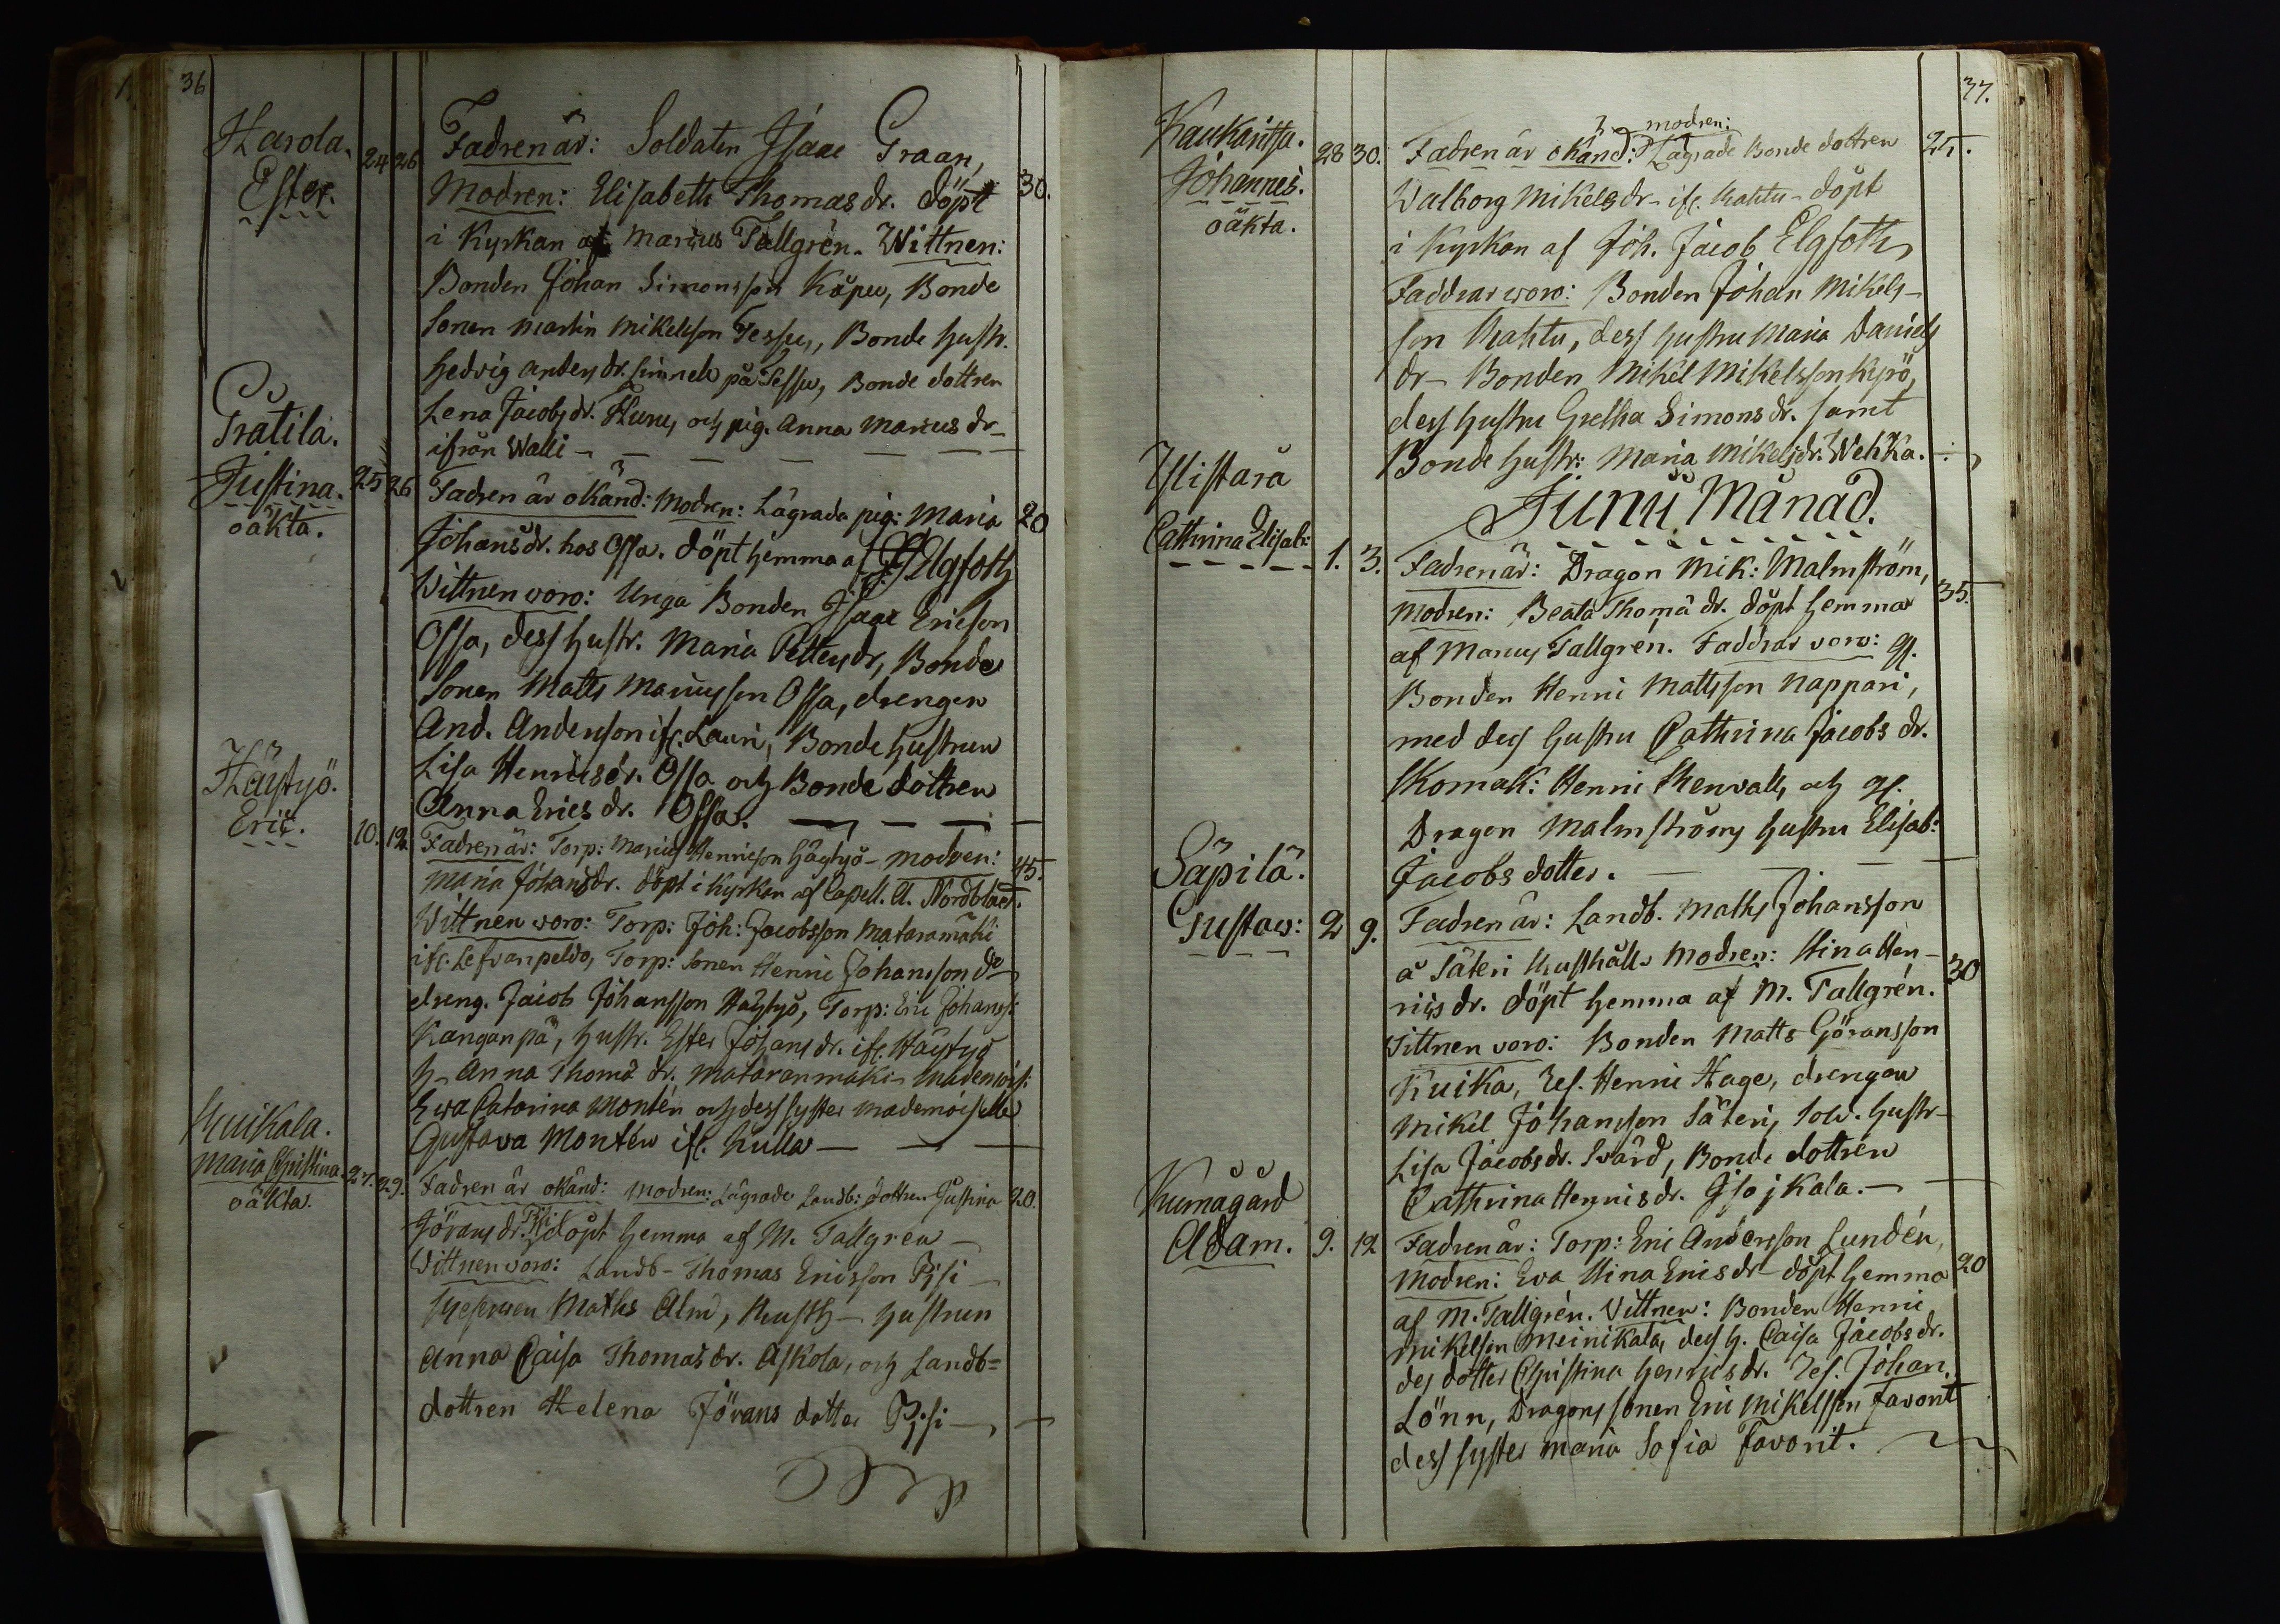 36
Harola.
Ester.
24 26
Fadren är: Soldaten Isaac Graan,
30.
Modren: Elisabeth Thomas dr. döpt
i Kyrkan af Marcus Tallgrén. Wittnen:
Bonden Johan Simonsson Köpu, Bonde
Sonen Martin Mikelsson Tessu, Bonde hustr.
Hedvig Anders dr. Simnelä på Tessu, Bonde dottren
Lena Jacobs dr. och pig. Anna Marcus dr
ifrån Walli
Gratila.
Justina.
oäkta.
25 26
Fadren är okänd: Modren: Lägrade pig: Maria
20
Johans dr. hos Ossa. döpt hemma af Elgfoth
Wittnen voro: Unga Bonden Isaac Ericson
Ossa, dess hustr. Maria Petters dr, Bonde
Sonen Matts Marcusson Ossa, drengen
And. Andersson ifr. Lauri, Bonde hustrun
Lisa Henrics dr. Ossa och Bonde dottren
Anna Erics dr. Ossa.
Häyhyö.
Eric.
10. 12
Fadren är: Torp: Marcus Henricson Häyhyö - Modren:
45.
Maria Johans dr. döpt i Kyrkan af Capell. A. Nordblad.
Wittnen voro: Torp: Joh: Jacobsson Mataramäki
ifr. Lefvanpeldo, Torp: Sonen Henric Johansson
dreng. Jacob Johansson Häyhyö, Torp: Eric Johanss:
Kanganpä, hustr. Ester Johans dr. ifr. Häyhyö
h. Anna Thomæ dr. Mataranmäki
Ewa Catarina Montén och dess syster Mademoiselle
Gustava Montén ifr. Kulla
Huikala.
Maria Christina.
oäkta.
27. 29.
Fadren är okänd: Modren: Lägrade Landb: dottren Justina
20.
Jörans dr. Pisi döpt hemma af M. Tallgren
Wittnen voro: Landb- Thomas Ericsson Pisi
Matts Alm, Rusth- hustrun
Anna Caisa Thomas dr. Askola, och Landb=
dottren Helena Jörans dotter Pisi
37.
Kaukaritsa.
Johannes.
oäkta.
28 30.
modren:
Fadren är okänd: Lägrade Bonde dottren
25.
Walborg Mikels dr ifr. Mahtu - döpt
i Kyrkan af Joh. Jacob Elgfoth
Faddrar woro: Bonden Johan Mikels-
son Mahtu, dess hustru Maria Daniels
dr - Bonden Mikel Mikelsson Kyrö,
dess hustru Gretha Simons dr. samt
Bonde hustr: Maria Mikels dr. Wehka.
Junii Månad.
Ylistarä
Cathrina Elisab:
1. 3.
Fadren är: Dragon Mik: Malmström,
35.
Modren: Beata Thomæ dr. döpt hemma
af Marcus Tallgrén. Faddrar voro: gl.
Bonden Henric Mattsson Nappari,
med dess hustru Cathrina Jacobs dr.
Skomak: Henric Renvall, och gl.
Dragon Malmströms hustru Elisab:
Jacobs dotter.
Säpilä.
Gustav:
2 9.
Fadren är: Landb. Matts Johansson
å Säteri Rusthåll. Modren: Stina Hen-
30
rics dr. döpt hemma af M. Tallgrén.
Vittnen voro: Bonden Matts Göransson
Kuika, Res. Henric Hage, drengen
Mikel Johansson Säteri, Sold. hustr-
Lisa Jacobs dr. Svärd, Bonde dottren
Cathrina Henrics dr. Isojkala.
Kumagård
Adam.
9. 12
Fadren är: Torp: Eric Andersson Lundén,
20
Modren: Eva Stina Erics dr - döpt hemma
af M. Tallgrén. Vittnen: Bonden Henric
Mikelsson Meinikala, dess h. Caisa Jacobs dr.
des dotter Christina Henrics dr. Res. Johan
Lönn, Dragons sonen Eric Mikelsson Favorit
dess syster Maria Sofia Favorit.